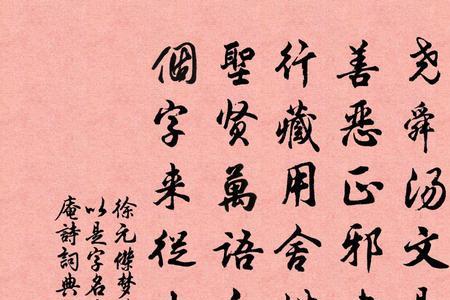 尧舜汤文
善恶正邪
行藏用舍
聖贤萬语
個字来從
徐元傑梦
以是字名
庵詩詞典